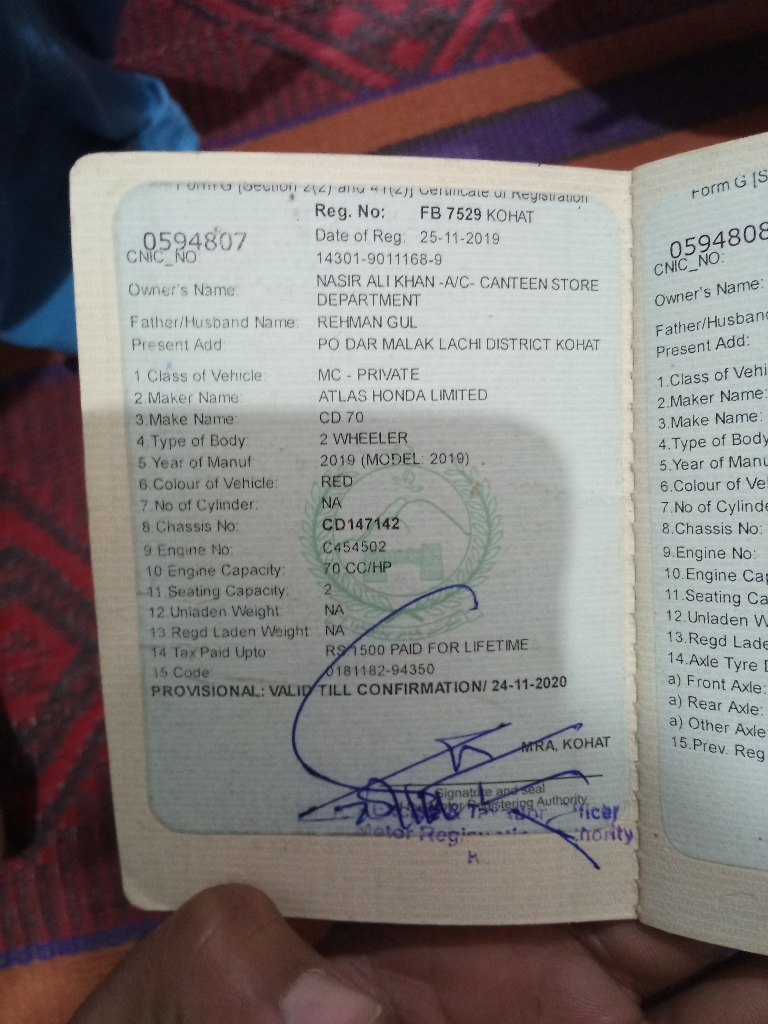 Form G [Section 2(2) and 41(2)] Certificate of Registration
Reg. No: FB 7529 KOHAT
0594807
Date of Reg. 25-11-2019
CNIC_NO: 14301-9011168-9
Owner's Name: NASIR ALI KHAN -A/C- CANTEEN STORE
DEPARTMENT
Father/Husband Name: REHMAN GUL
Present Add: PO DAR MALAK LACHI DISTRICT KOHAT
1 Class of Vehicle: MC - PRIVATE
2.Maker Name: ATLAS HONDA LIMITED
3.Make Name: CD 70
4.Type of Body: 2 WHEELER
5.Year of Manuf 2019 (MODEL: 2019)
6.Colour of Vehicle: RED
7.No of Cylinder: NA
8.Chassis No: CD147142
9.Engine No: C454502
10 Engine Capacity: 70 CC/HP
11.Seating Capacity: 2
12.Unladen Weight: NA
13 Regd Laden Weight: NA
14 Tax Paid Upto: RS 1500 PAID FOR LIFETIME
15 Code: 0181182-94350
PROVISIONAL: VALID TILL CONFIRMATION/ 24-11-2020
MRA, KOHAT
Signature and seal
Motor Registering Authority
Motor
Form G [S
0594808
CNIC_NO:
Owner's Name:
Father/Husban
Present Add:
1.Class of Vehi
2.Maker Name:
3.Make Name:
4.Type of Body
5.Year of Manu
6.Colour of Ve
7.No of Cylinde
8.Chassis No:
9.Engine No:
10.Engine Cap
11.Seating Ca
12.Unladen W
13.Regd Lade
14.Axle Tyre D
a) Front Axle:
a) Rear Axle:
a) Other Axle
15.Prev. Reg